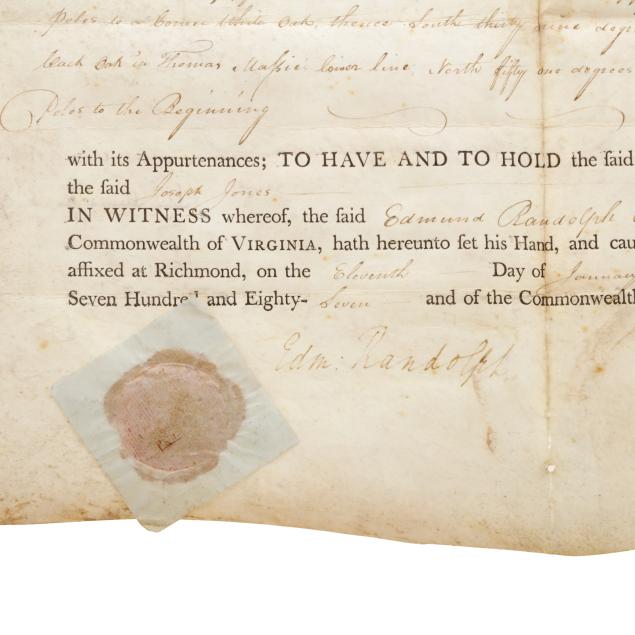 Poles to a Corner White Oak, thence South thirty nine degr
black Oak in Thomas Massie lower line, North fifty one degrees
Poles to the Beginning
with its Appurtenances; TO HAVE AND TO HOLD the said
the said Joseph Jones
IN WITNESS whereof, the said Edmund Randolph
Commonwealth of VIRGINIA, hath hereunto ſet his Hand, and cau
affixed at Richmond, on the Eleventh Day of January
Seven Hundred and Eighty- Seven and of the Commonwealth
Edm: Randolph